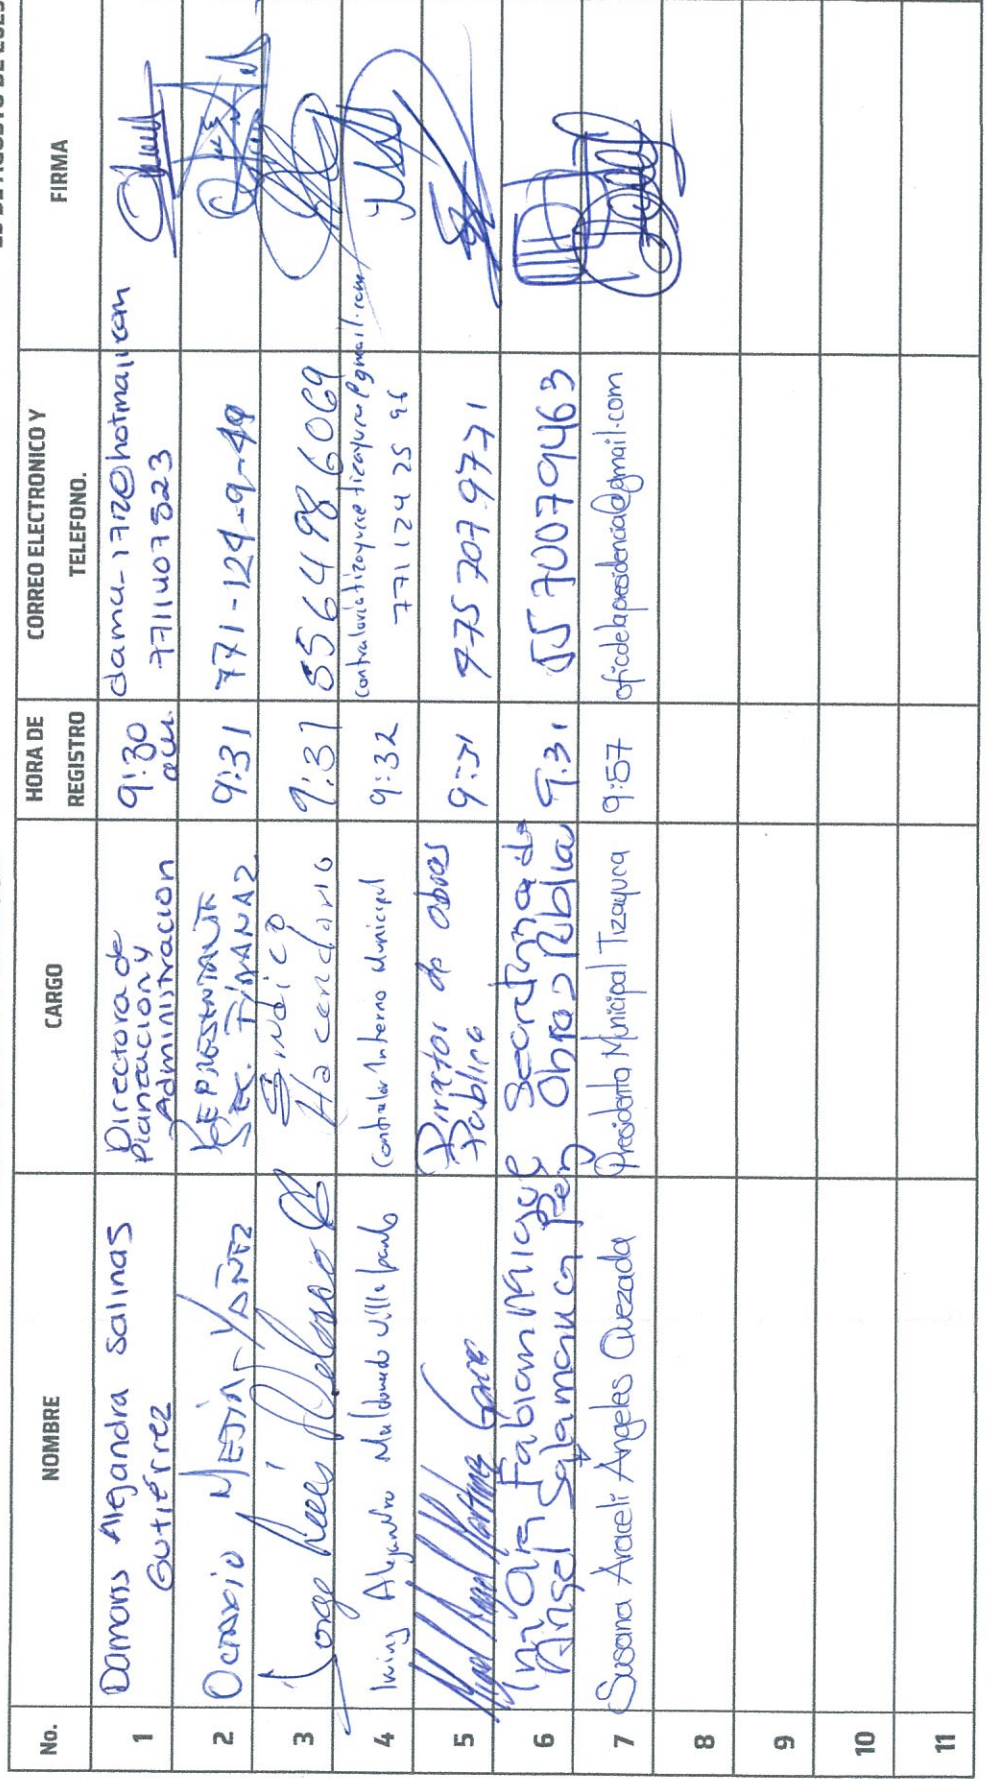 No.
NOMBRE
CARGO
HORA DE
REGISTRO
CORREO ELECTRONICO Y
TELEFONO.
FIRMA
1
Damaris Alejandra Salinas
Gutiérrez
Directora de
Planeación y
Administracion
9:30
am.
dama-1712@hotmail.com
7711407523
2
OCTAVIO MEJIA YAÑEZ
REPRESENTANTE
SEC. FINANAZ
9:31
771-124-9-49
3
Jorge Luis
Sindico
Hacendario
9:31
5564986069
4
Irving Alejandro Maldonado
Contralor Interno Municipal
9:32
771 124 25 96
5
Miguel Angel Martinez
Director de obras
Publica
9:31
775 707-9771
6
Fabian Miguel
Angel Salamanca
Secretaria de
Obras Publica
9:31
5570079463
7
Susana Araceli Ángeles Quezada
Presidenta Municipal Tizayuca
9:57
oficdelapresidencia@gmail.com
8
9
10
11